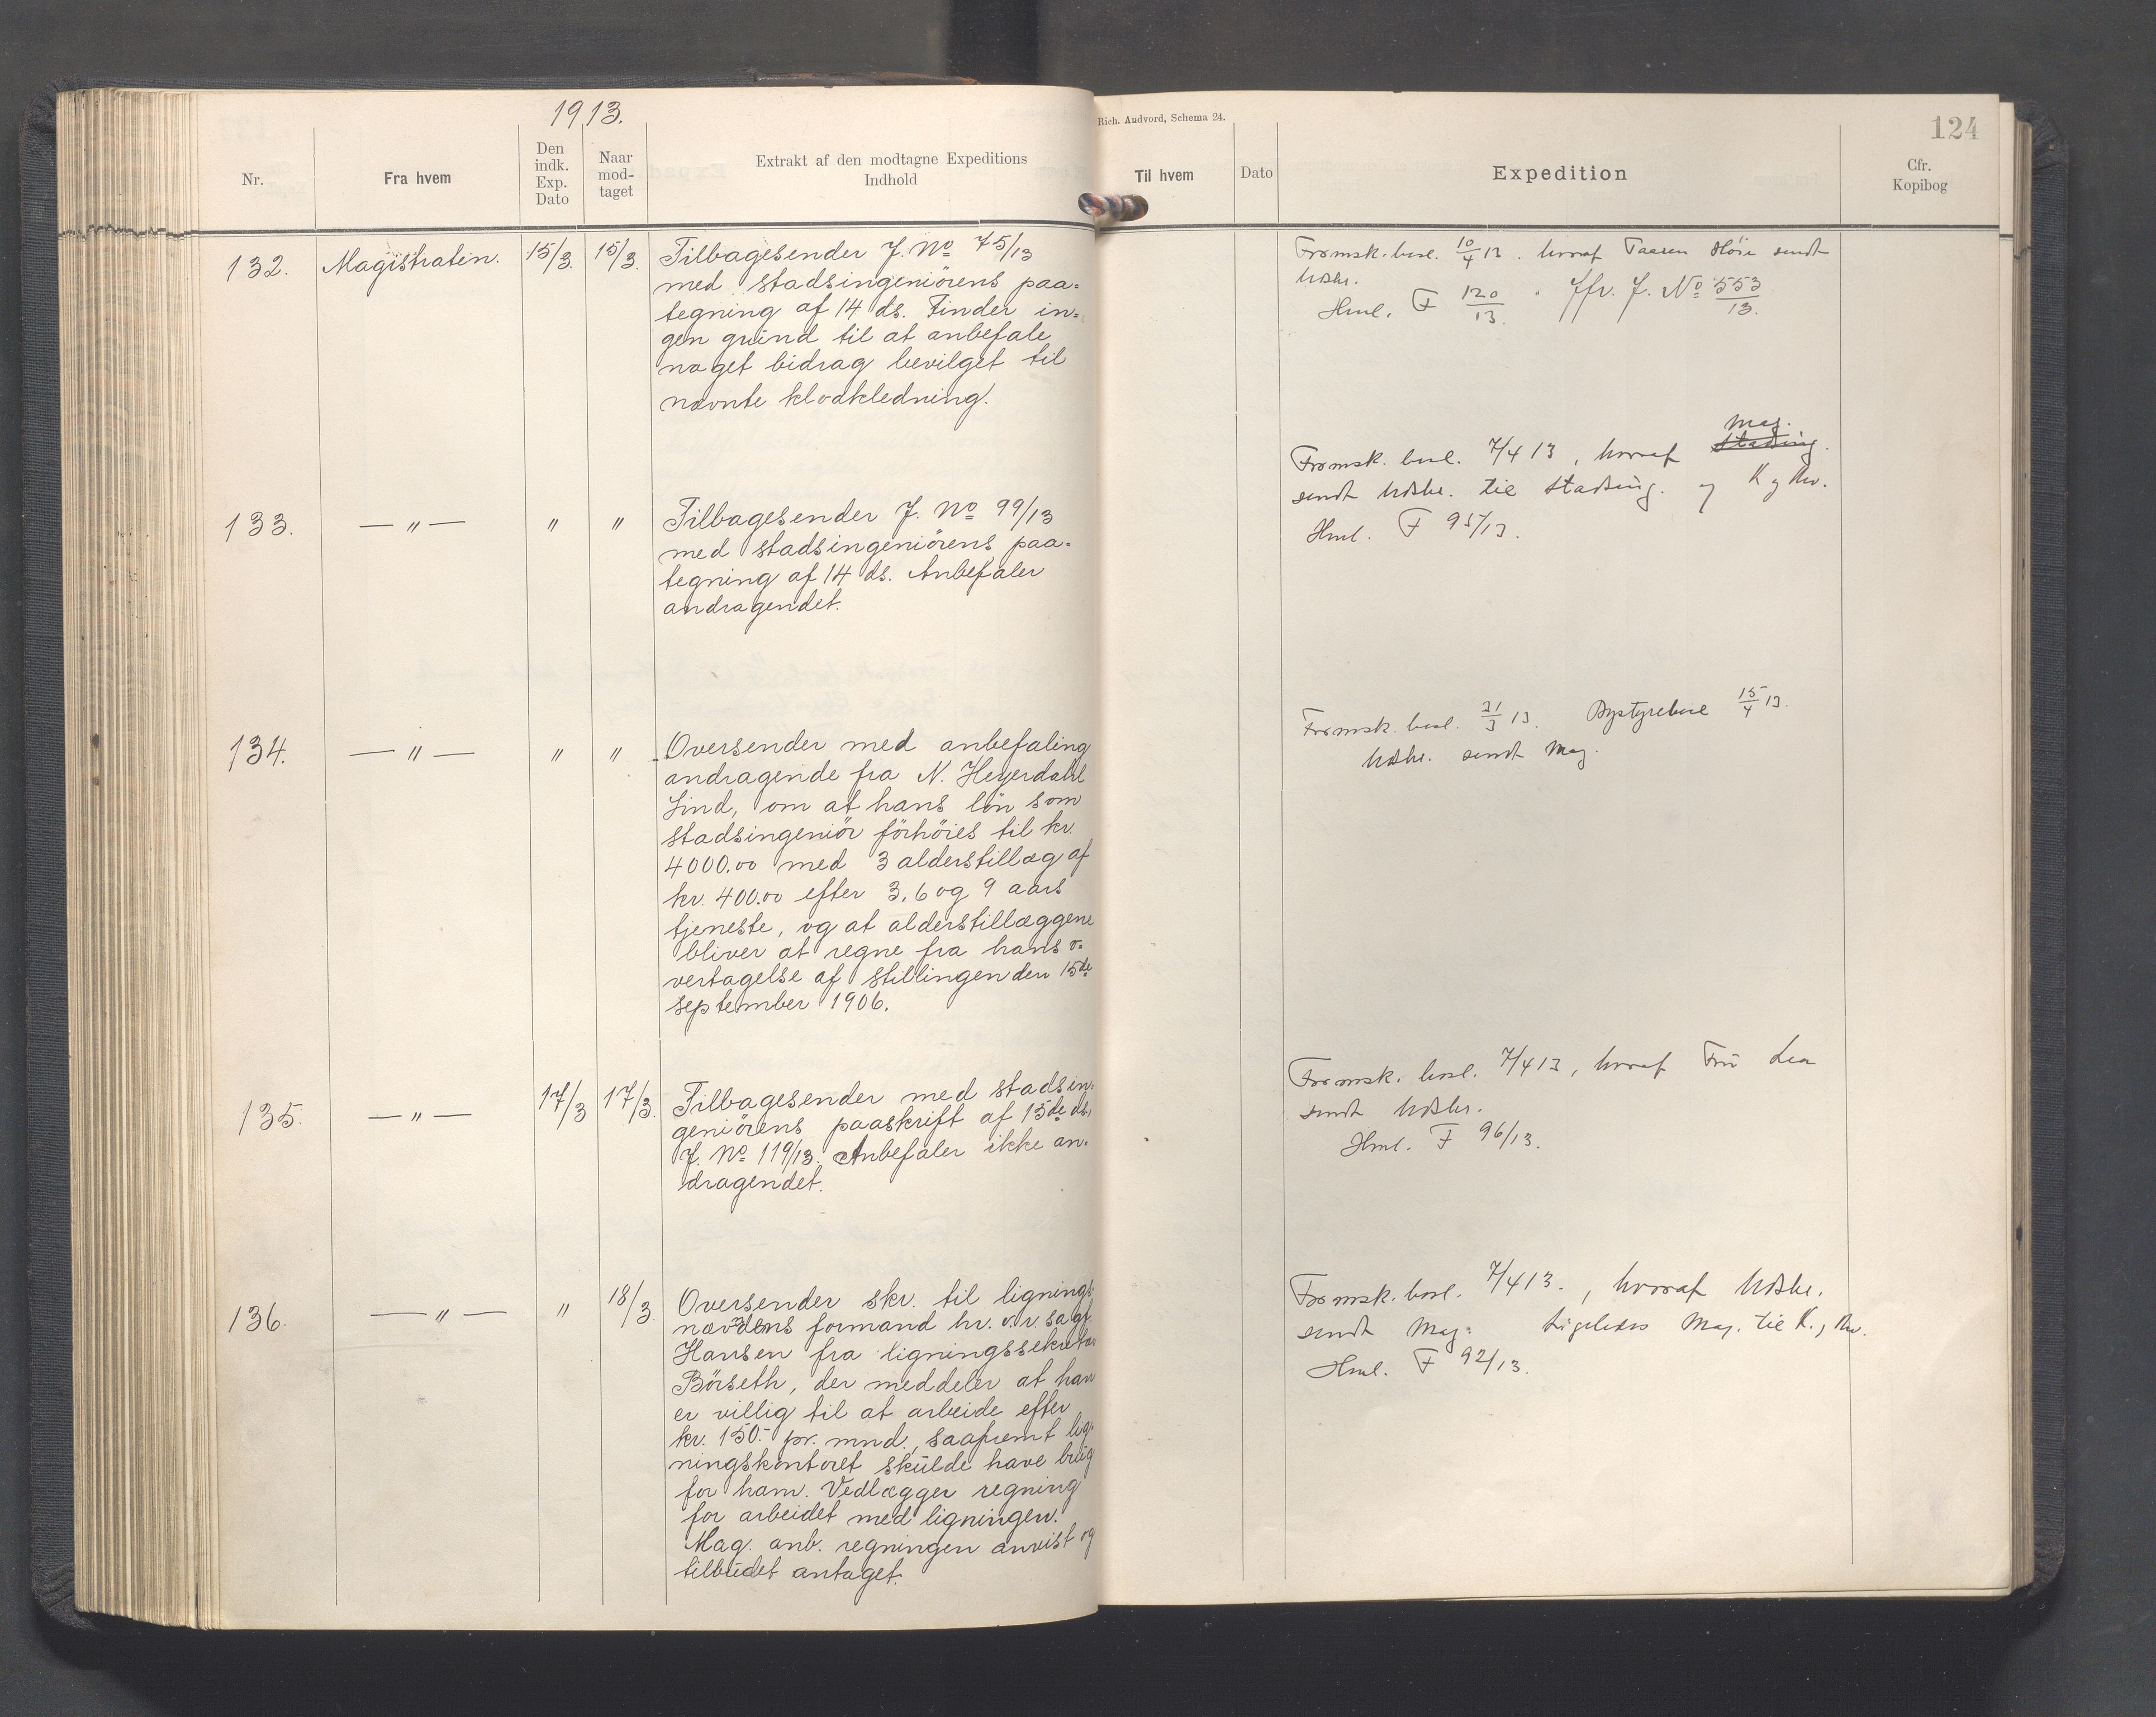 1913.
Rich. Andvord, Schema 24.
124
Nr.
Fra hvem
Den indk. Exp. Dato
Naar mod- taget
Extrakt af den modtagne Expeditions Indhold
Til hvem
Dato
Expedition
Cfr. Kopibog
132. Magistraten. 15/3. 15/3. Tilbagesender J. No 75/13
med stadsingeniörens paa-
tegning af 14 ds. Finder in-
gen grund til at anbefale
noget bidrag bevilget til
nævnte klodkledning.
Formsk. besl. 10/4 13. hvoraf Taaren Höie sendt
Udskr.
Hml. F 120/13. Jfr. J. No 553/13.
133. — " — " " Tilbagesender J. No 99/13
med stadsingeniörens paa-
tegning af 14 ds. Anbefaler
andragendet.
Mag.
Formsk. besl. 7/4 13, hvoraf Stadsing.
sendt Udskr. til Stadsing. og K og Rev.
Hml. F 95/13.
134. — " — " " Oversender med anbefaling
andragende fra N. Heyerdahl
Lind, om at hans lön som
stadsingeniör förhöies til kr.
4000.00 med 3 alderstillæg af
kr. 400.00 efter 3, 6 og 9 aars
tjeneste, og at alderstillæggene
bliver at regne fra hans o-
vertagelse af stillingen den 15de
september 1906.
Formsk. besl. 31/3 13. Bystyrebesl 15/4 13.
Udskr. sendt Mag.
135. — " — 17/3 17/3. Tilbagesender med stadsin-
geniörens paaskrift af 15de ds.
J. No 119/13. Anbefaler ikke an-
dragendet.
Formsk. besl. 7/4 13, hvoraf Fru Lea
sendt Udskr.
Hml. F 96/13.
136. — " — " 18/3. Oversender skr. til lignings-
nævndens formand hr. o.r sagf.
Hansen fra ligningssekretær
Börseth, der meddeler at han
er villig til at arbeide efter
kr. 150.- pr. mnd., saafremt lig-
ningskontoret skulde have brug
for ham. Vedlægger regning
for arbeidet med ligningen.
Mag. anb. regningen anvist og
tilbudet antaget.
Formsk. besl. 7/4 13., hvoraf Udskr.
sendt Mag. Ligeledes Mag. til K. og Rev.
Hml. F 92/13.